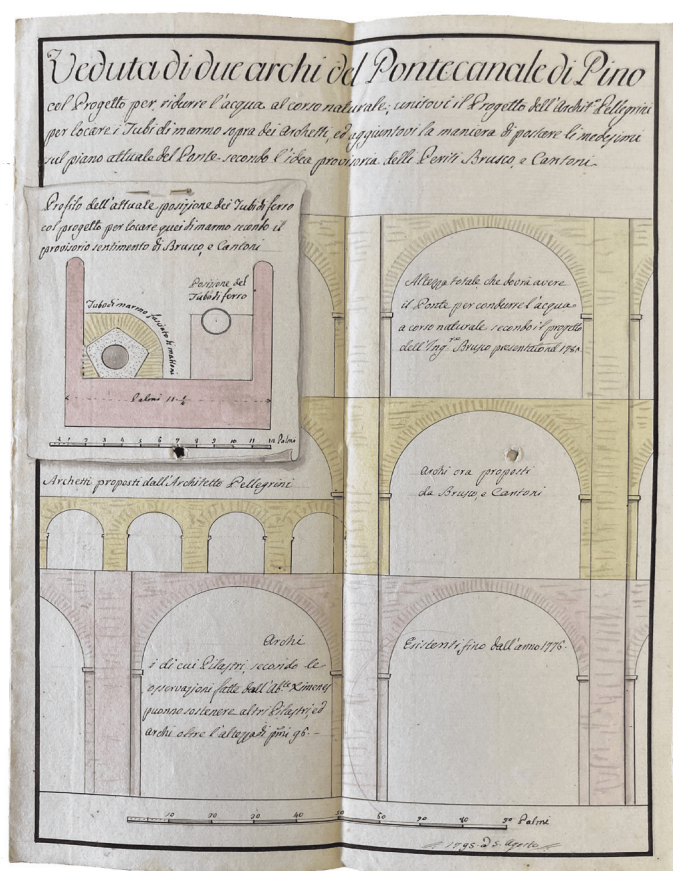 Veduta di due archi del Pontecanale di Pino
col Progetto per ridurre l'acqua al corso naturale; unitovi il Progetto dell'Archit.º Pellegrini
per locare i Tubi di marmo sopra dei Archetti, ed aggiuntovi la maniera di postare li medesimi
sul piano attuale del Ponte secondo l'idea provisoria delli Periti Brusco, e Cantoni
Profilo dell'attuale posizione dei Tubi di ferro
col progetto per locare quei di marmo secondo il
provisorio sentimento di Brusco, e Cantoni
Posizione del
Tubo di ferro
Tubo di marmo fasciato di mattoni
Palmi 11-½
1 2 3 4 5 6 7 8 9 10 11 12 Palmi
Altezza totale che dovrà avere
il Ponte per condurre l'acqua
a corso naturale secondo il progetto
dell'Ing.re Brusco presentato nel 1782
Archi ora proposti
da Brusco, e Cantoni
Archetti proposti dall'Architetto Pellegrini
Archi
i di cui Pilastri, secondo le
osservazioni fatte dall'Ab.te Ximenes
puonno sostenere altri Pilastri, ed
archi oltre l'altezza di pmi 96.-
Esistenti fino dall'anno 1776
10 20 30 40 50 60 70 80 90 Palmi
1795 a 5 Agosto